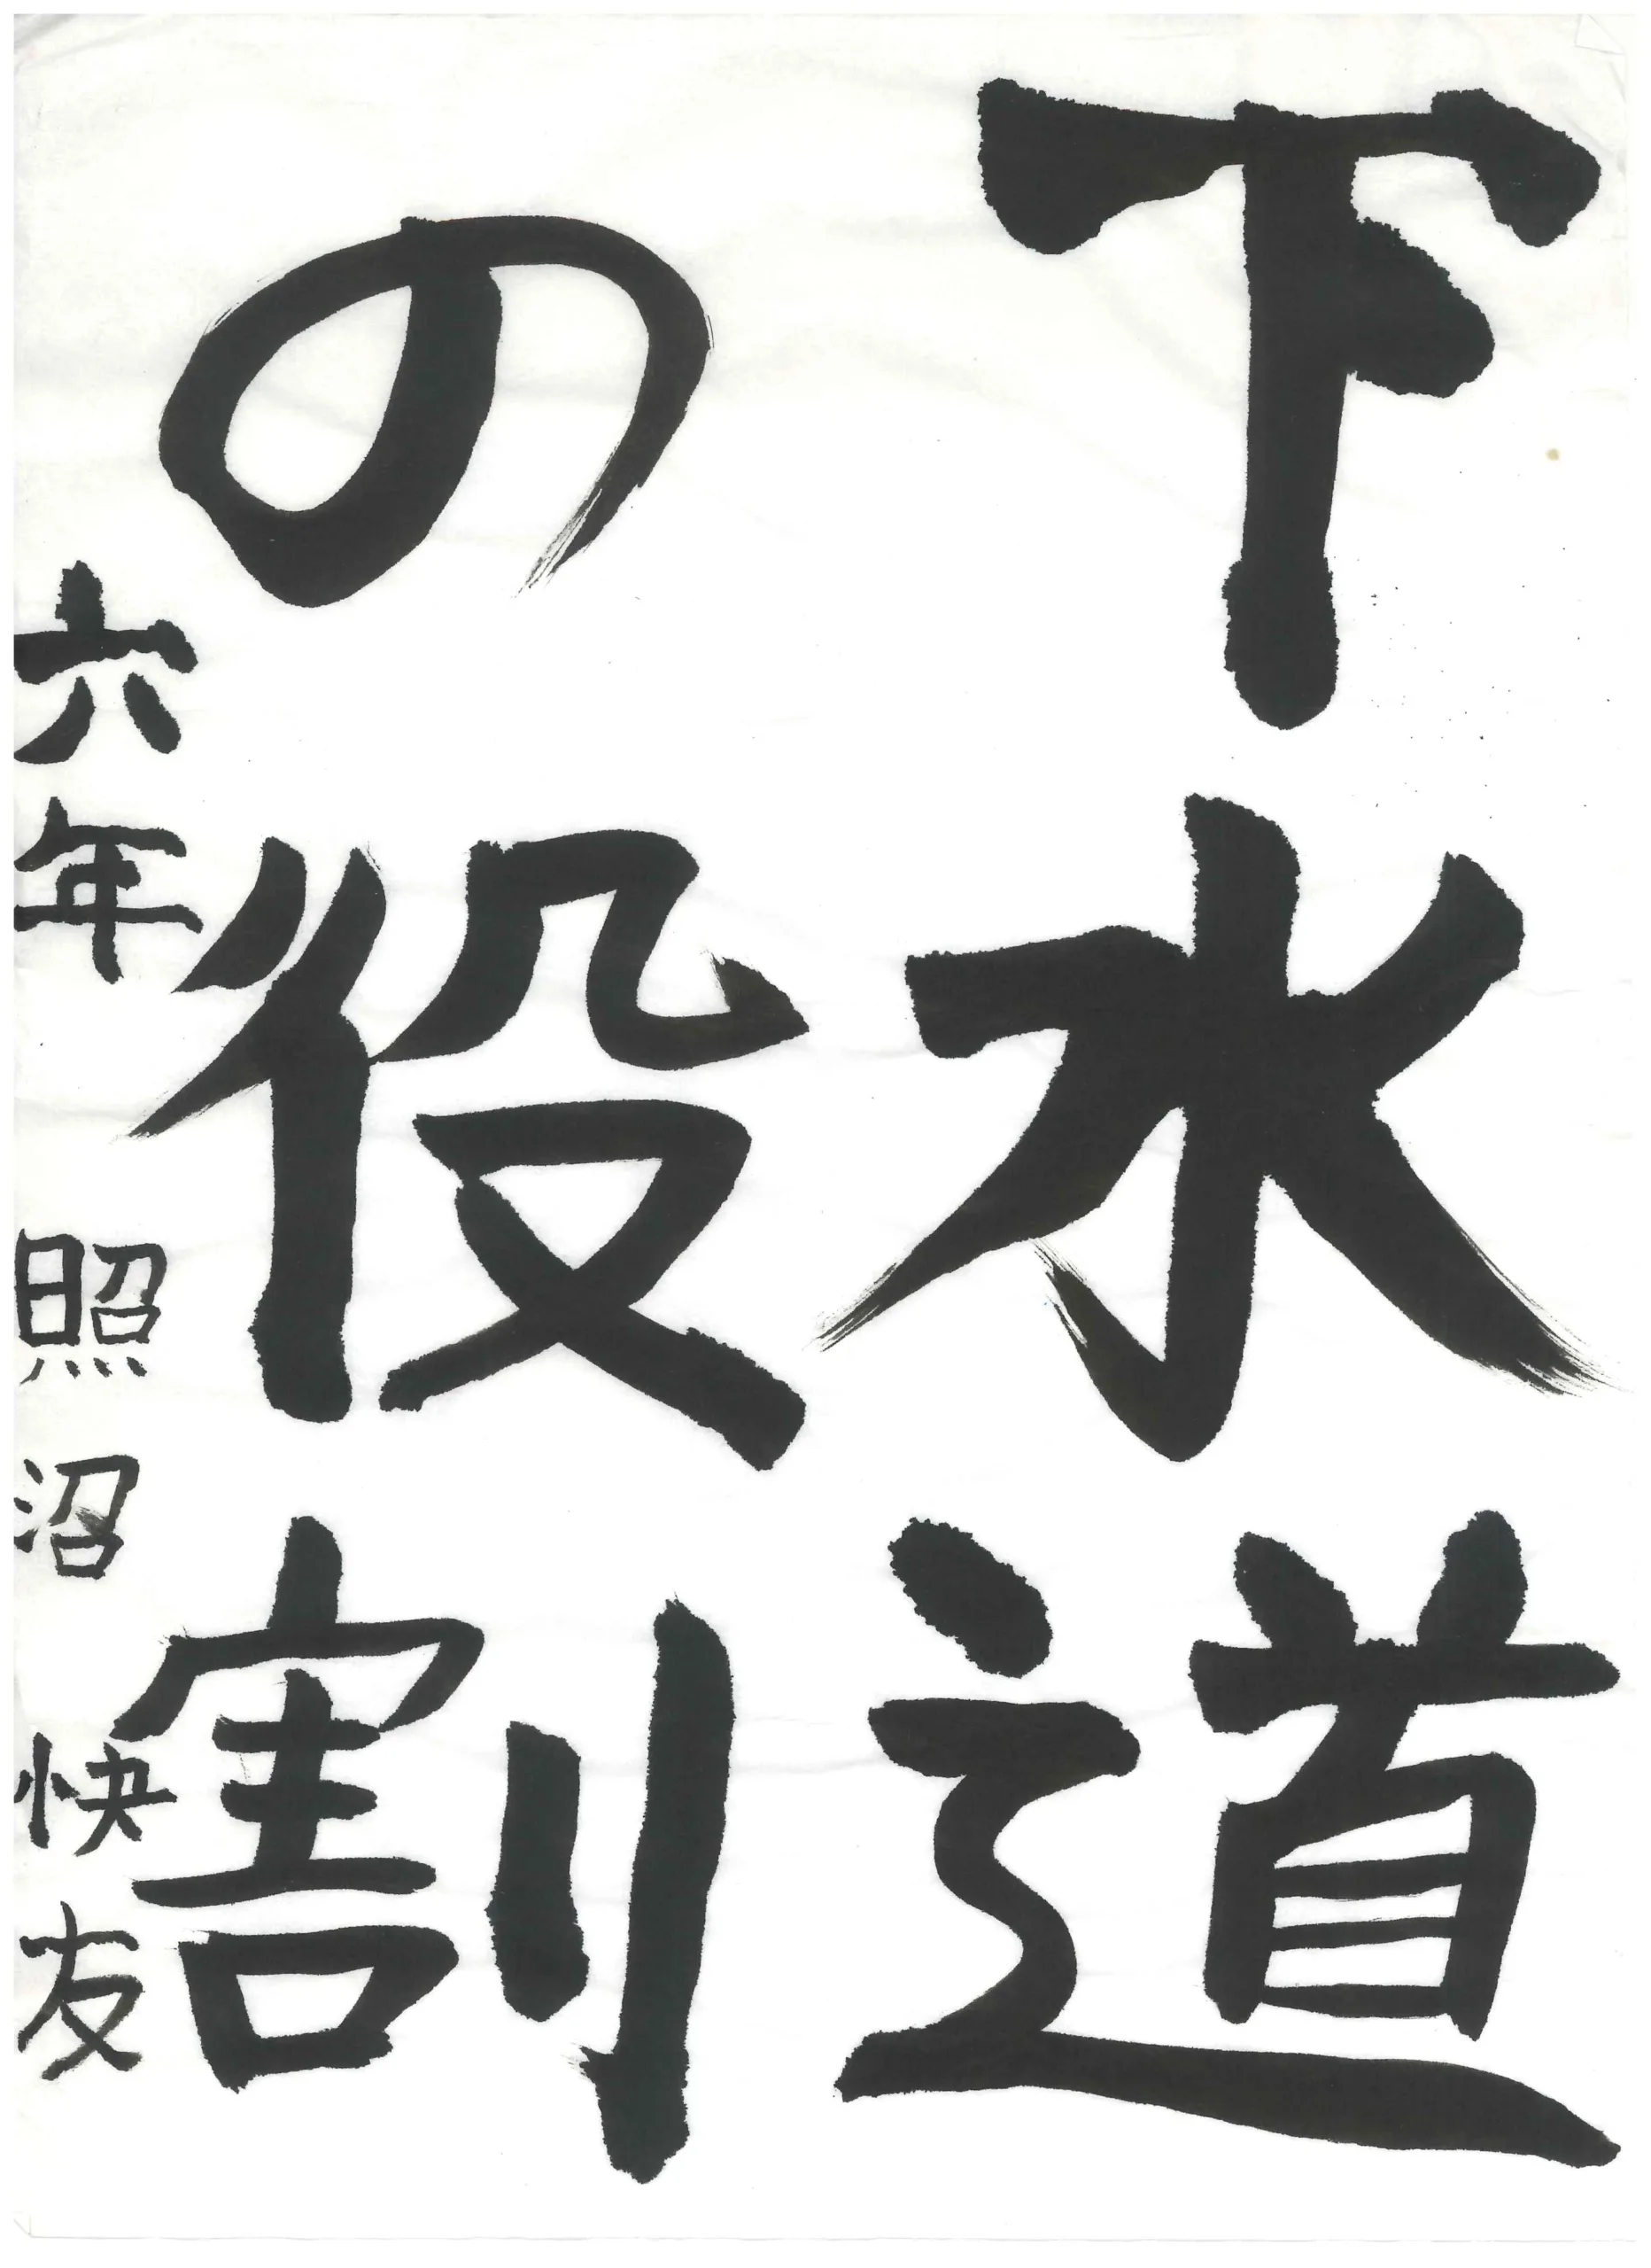 下水道
の役割
六年 照沼快友